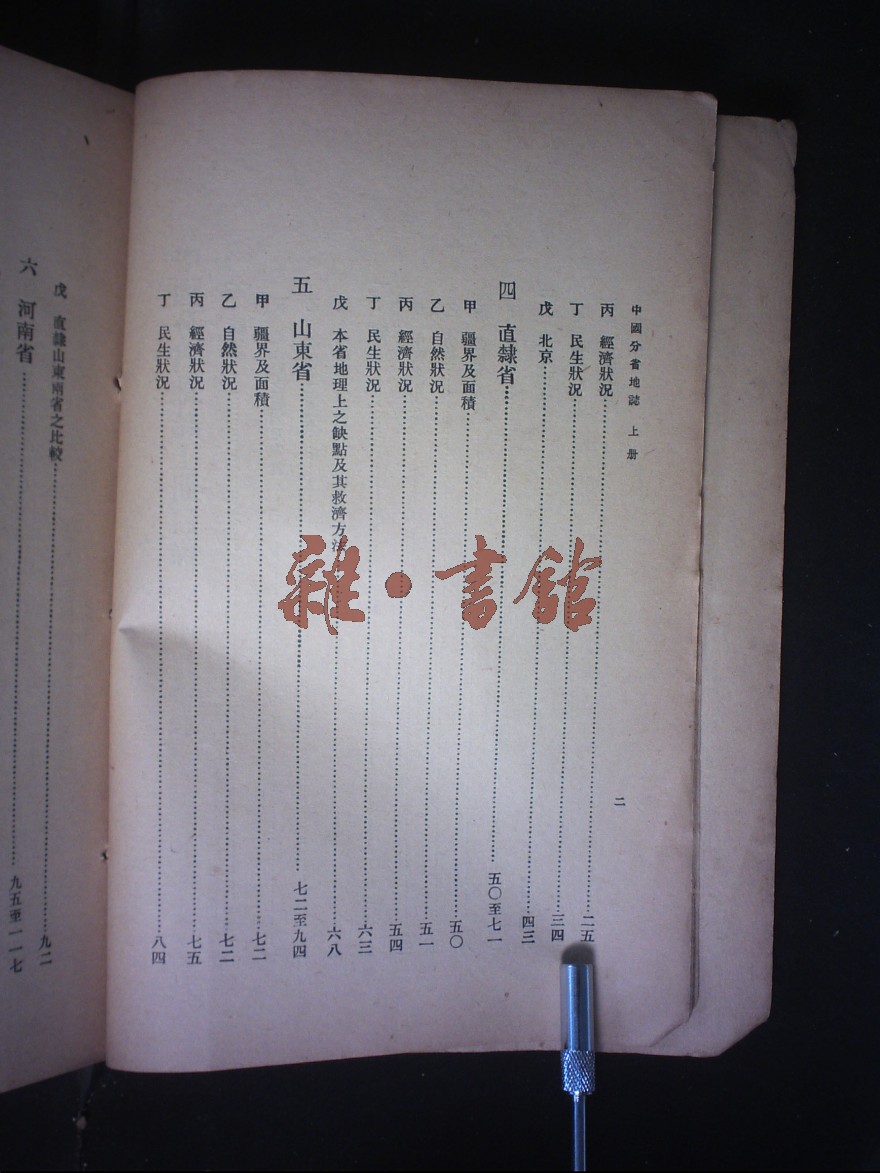 中國分省地誌 上册 二
丙 經濟狀況……二五
丁 民生狀況……三四
戊 北京……四三
四 直隸省……五〇至七一
甲 疆界及面積……五〇
乙 自然狀況……五一
丙 經濟狀況……五四
丁 民生狀況……六三
戊 本省地理上之缺點及其救濟方法……六八
五 山東省……七二至九四
甲 疆界及面積……七二
乙 自然狀況……七二
丙 經濟狀況……七五
丁 民生狀況……八四
戊 直隸山東兩省之比較……九二
六 河南省……九五至一一七
雜·書館